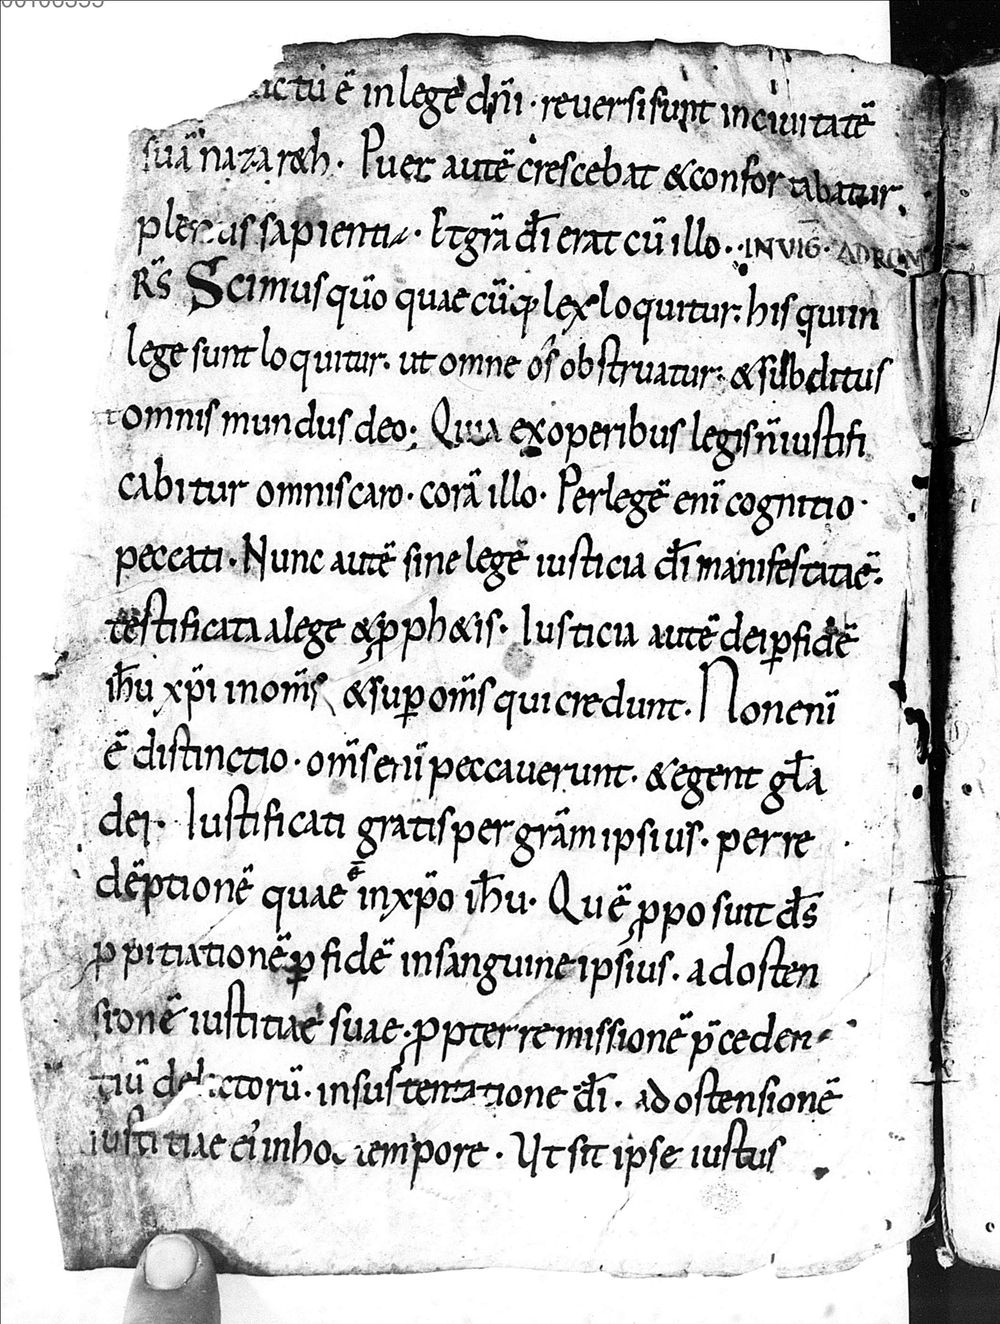 ictū ē in lege dn̄i · reuersi sunt in ciuitatē
suā nazar&h · Puer autē crescebat & confortabatur.
plenus sapientia · Et grā dī erat cū illo · IN VIG̅ · AD ROM
FRS̄ Scimus qūo quae cūq; lex loquitur: his qui in
lege sunt loquitur · ut omne ós obstruatur: & subditus
omnis mundus deo; Quia ex operibus legis n̄ iustifi
cabitur omnis caro · corā illo · Per legē enī cognitio ·
peccati · Nunc autē sine lege iusticia dī manifestatāē.
testificata a lege & ꝓph&is · Iusticia autē dei ꝑ fidē
ih̄u xp̄i in om̄s & suꝑ om̄s qui credunt · Non enī
ē distinctio · om̄s enī peccauerunt · & egent gl̄a
dei · Iustificati gratis per grām ipsius · per re
dēptionē quae ē in xp̄o ih̄u · Quē ꝓposuit d̄s
ꝓpitiationē ꝑ fidē in sanguine ipsius · ad osten
sionē iustitiae suae · ꝓpter remissionē p̄ceden
tiū delictorū · in sustentatione dī · ad ostensionē
iustitiae ei' in hoc tempore · Ut sit ipse iustus